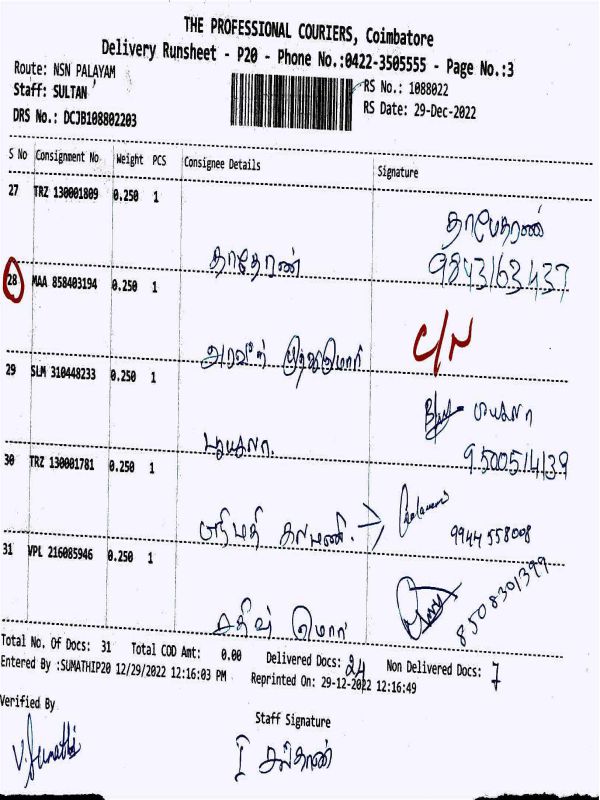 THE PROFESSIONAL COURIERS, Coimbatore
Delivery Runsheet - P20 - Phone No.:0422-3505555 - Page No.:3
Route: NSN PALAYAM
RS No.: 1088022
Staff: SULTAN
RS Date: 29-Dec-2022
DRS No.: DCJB108802203
S No Consignment No Weight PCS Consignee Details Signature
27 TRZ 130001809 0.250 1
9843163437
28 MAA 858403194 0.250 1
C/N
29 SLM 310448233 0.250 1
9500514139
30 TRZ 130001781 0.250 1
9944558008
31 VPL 216085946 0.250 1
8508301399
Total No. Of Docs: 31 Total COD Amt: 0.00 Delivered Docs: 24 Non Delivered Docs: 7
Entered By :SUMATHIP20 12/29/2022 12:16:03 PM Reprinted On: 29-12-2022 12:16:49
Verified By
Staff Signature
V. Sumathi